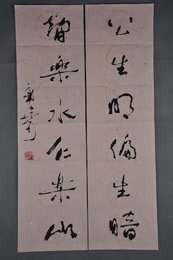 公生明偏生暗
智樂水仁樂山